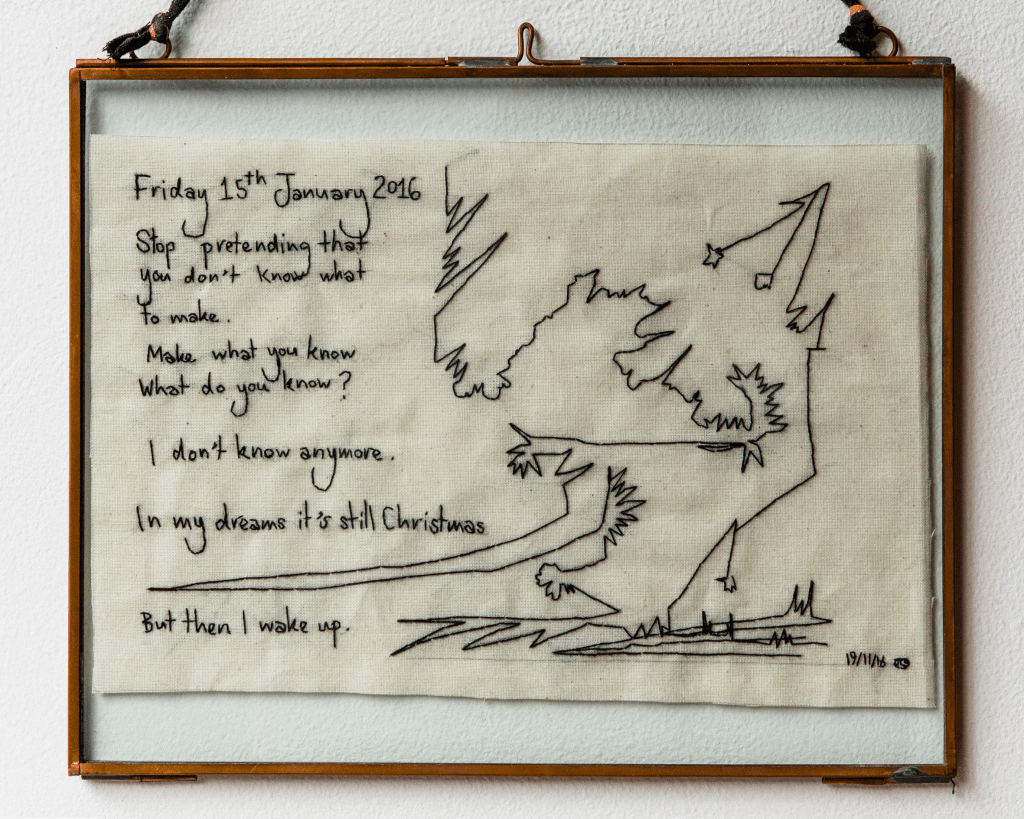 Friday 15th January 2016
Stop pretending that
you don't know what
to make.
Make what you know
What do you know?
I don't know anymore.
In my dreams it's still Christmas
But then I wake up.
19/11/16